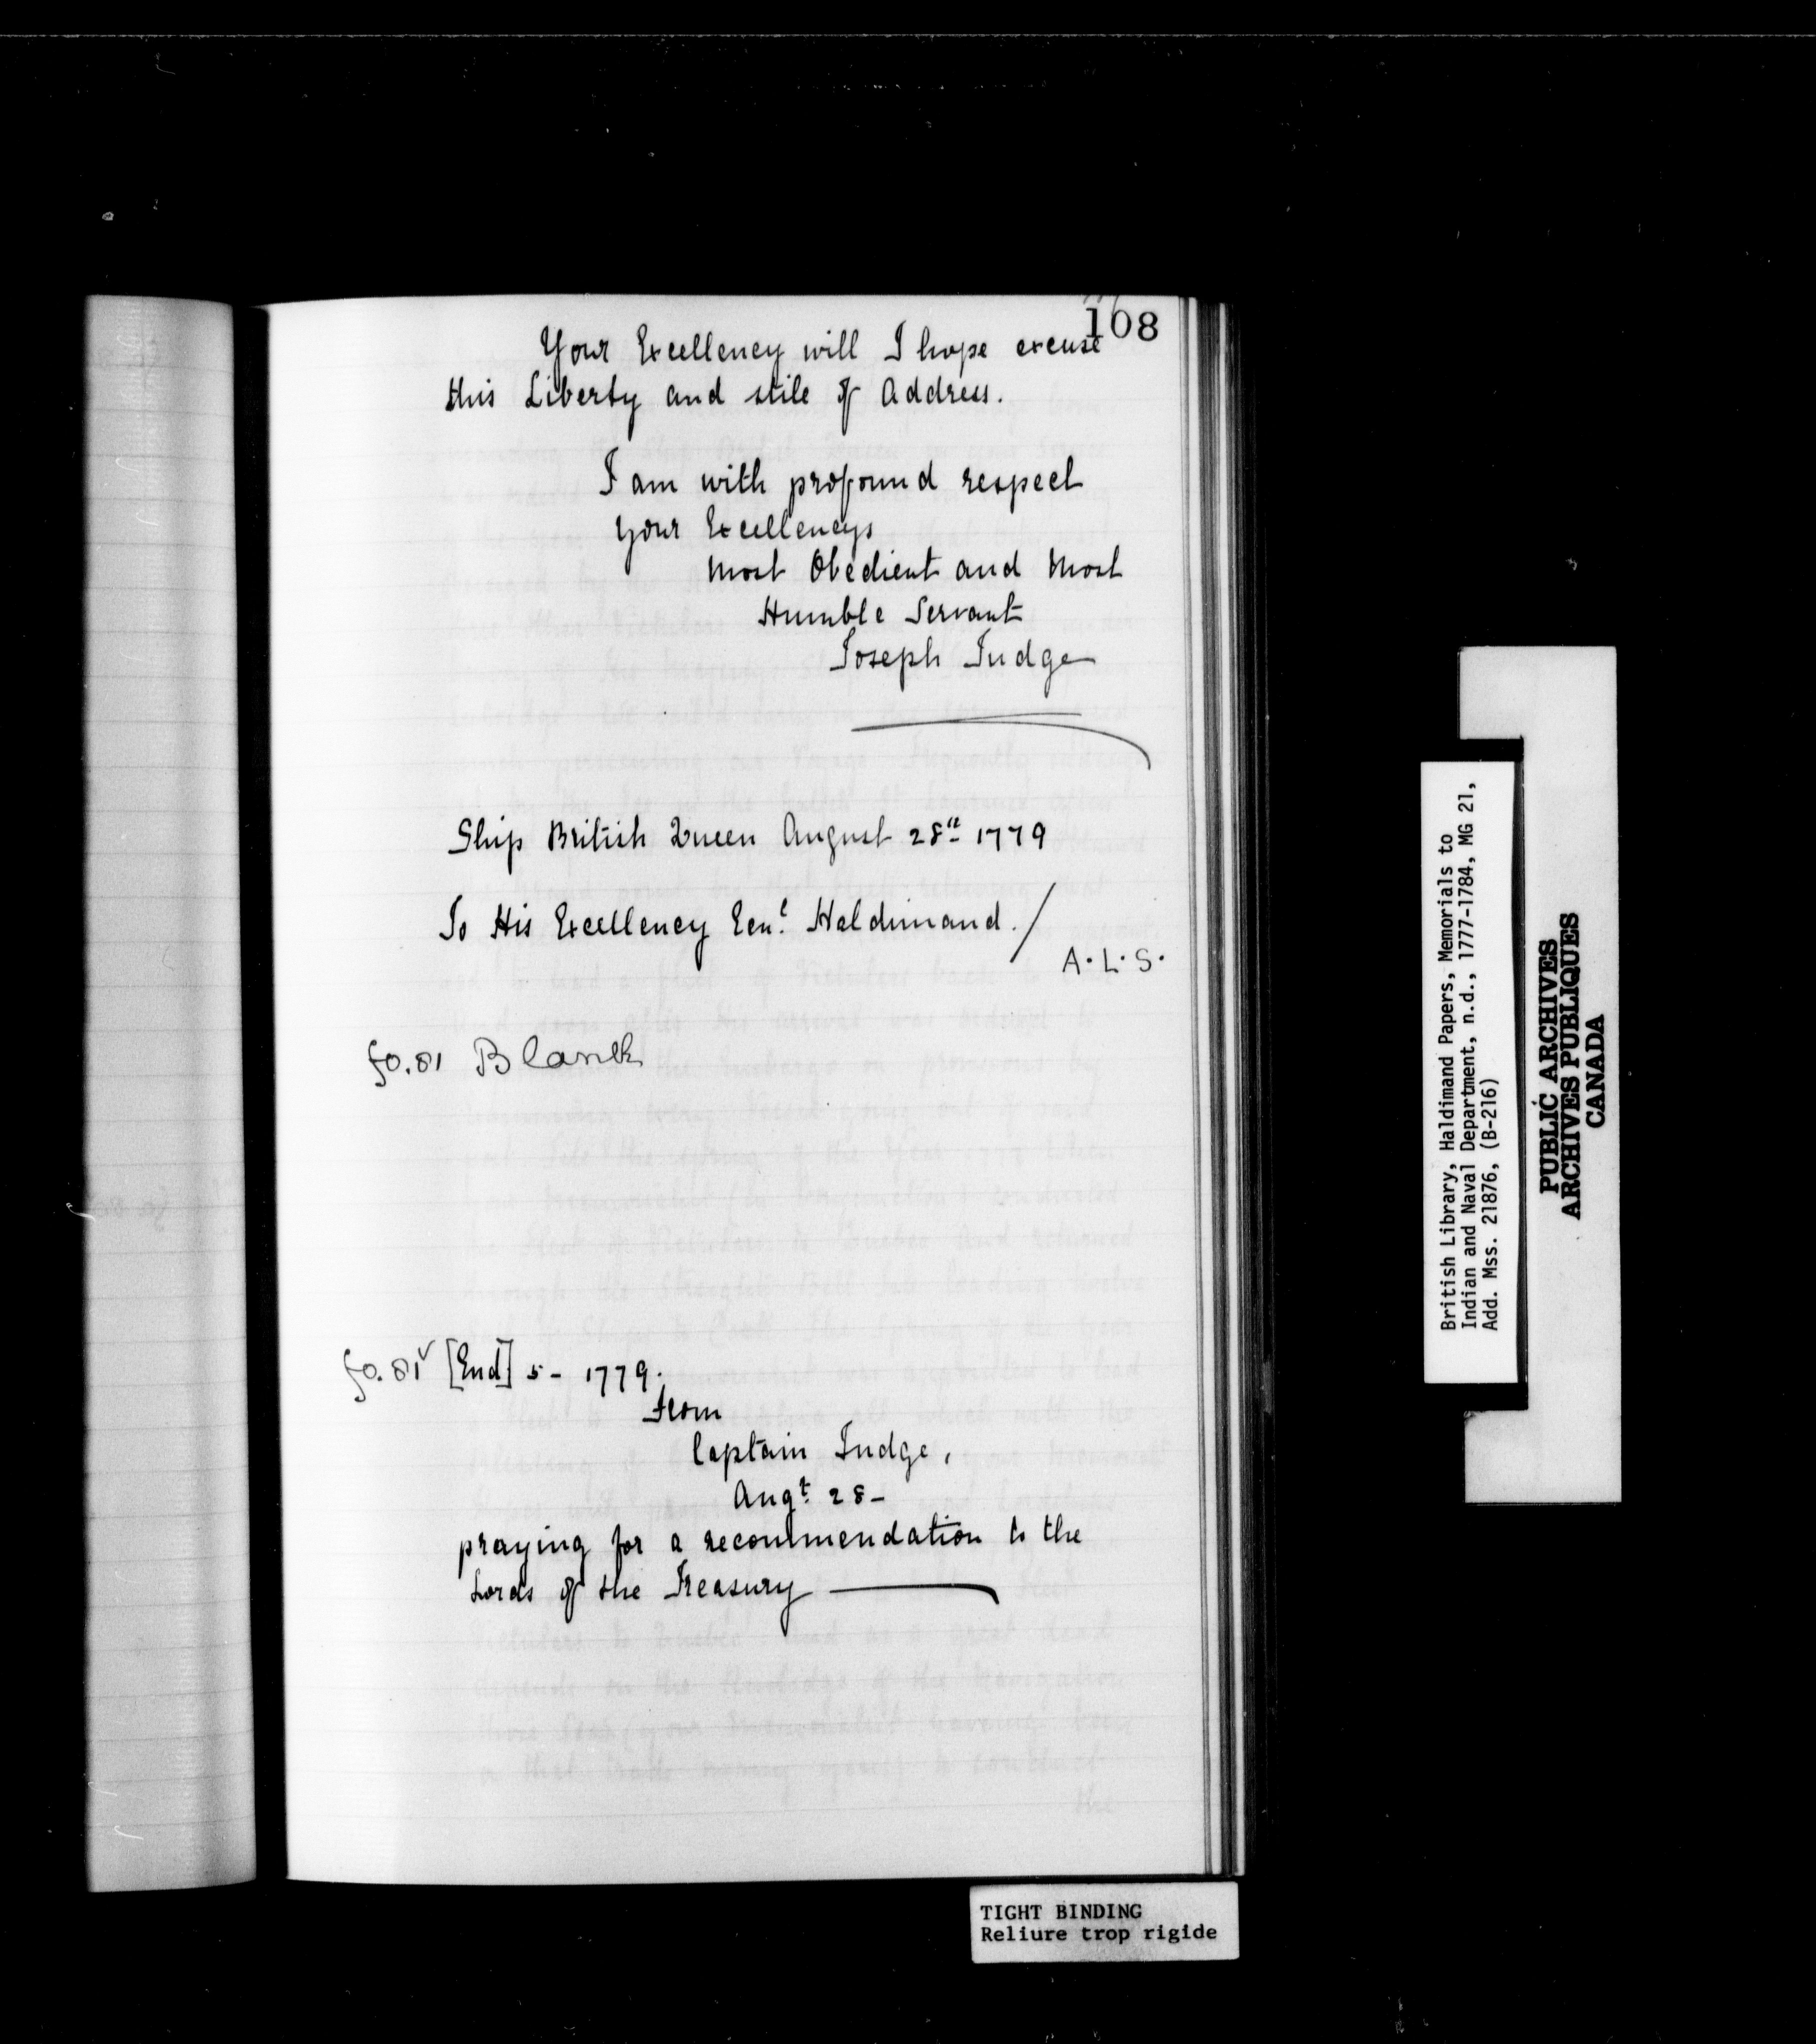 108
Your Excellency will I hope excuse
this Liberty and stile of Address.
I am with profound respect
your Excellencys
most Obedient and most
Humble Servant
Joseph Judge
Ship British Queen August 28th 1779
To His Excellency Genl Haldimand./
A.L.S.
fo.81 Blank
fo.81v [End] 5- 1779.
From
Captain Judge,
Augt 28-
praying for a recommendation to the
Lords of the Treasury
British Library, Haldimand Papers, Memorials to
Indian and Naval Department, n.d., 1777-1784, MG 21,
Add. Mss. 21876, (B-216)
PUBLIC ARCHIVES
ARCHIVES PUBLIQUES
CANADA
TIGHT BINDING
Reliure trop rigide